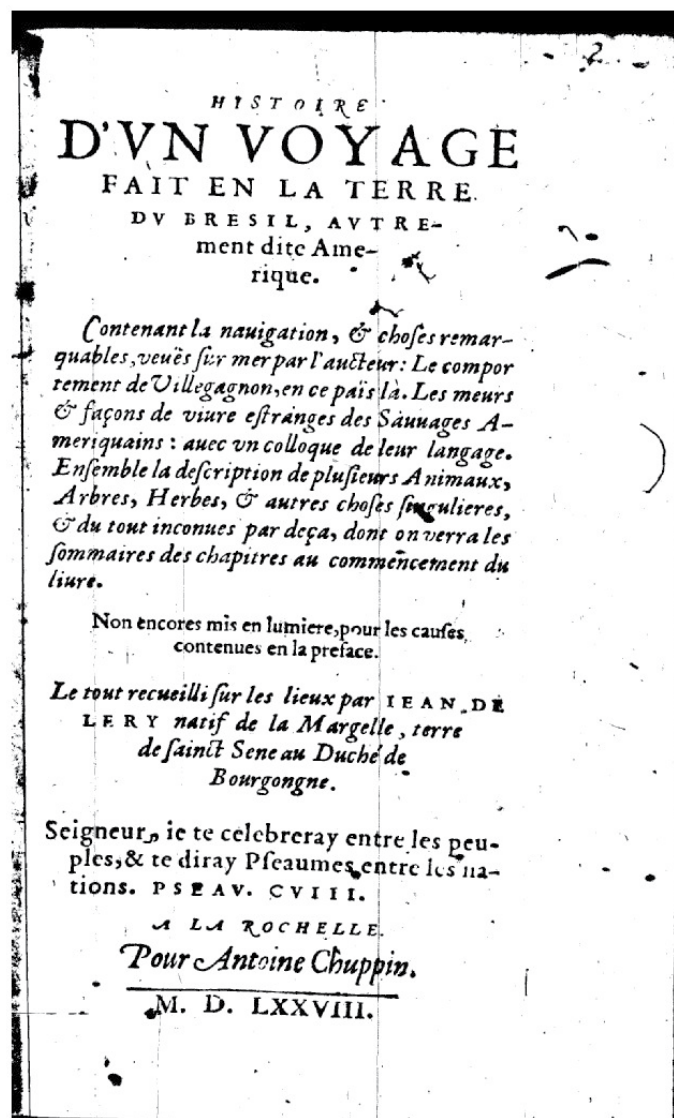 HISTOIRE
D'VN VOYAGE
FAIT EN LA TERRE
DV BRESIL, AVTRE-
ment dite Ame-
rique.
Contenant la nauigation, & choses remar-
quables, veuës sur mer par l'aucteur: Le compor
tement de Villegagnon, en ce païs là. Les meurs
& façons de viure estranges des Sauuages A-
meriquains: auec vn colloque de leur langage.
Ensemble la description de plusieurs Animaux,
Arbres, Herbes, & autres choses singulieres,
& du tout inconues par deça, dont on verra les
sommaires des chapitres au commencement du
liure.
Non encores mis en lumiere, pour les causes
contenues en la preface.
Le tout recueilli sur les lieux par IEAN DE
LERY natif de la Margelle, terre
de sainct Sene au Duché de
Bourgongne.
Seigneur, ie te celebreray entre les peu-
ples, & te diray Pseaumes entre les na-
tions. PSEAV. CVIII.
A LA ROCHELLE.
Pour Antoine Chuppin.
M. D. LXXVIII.